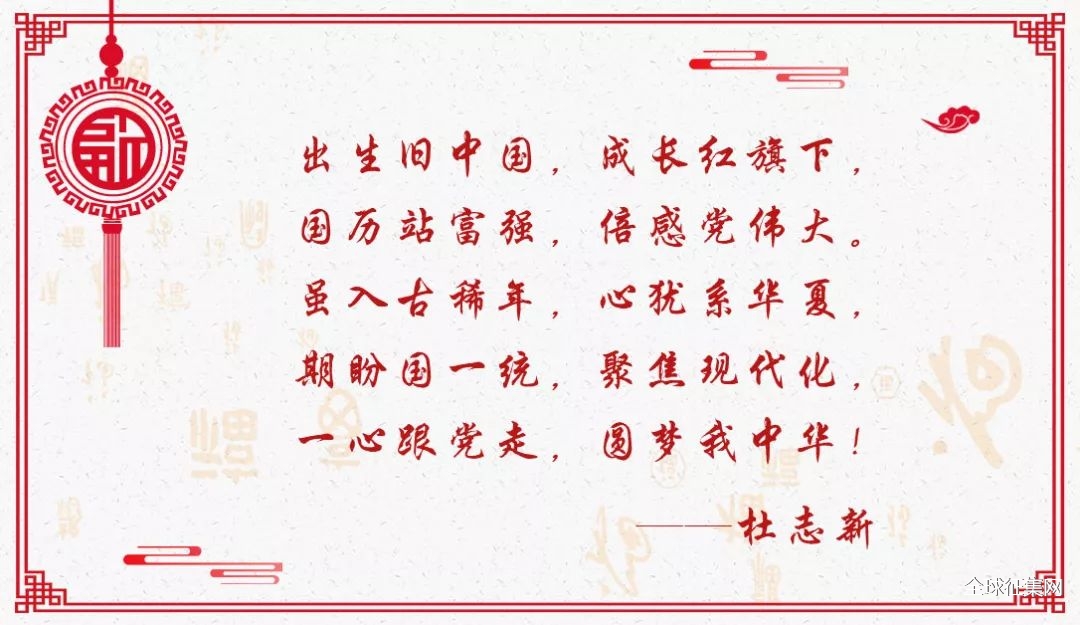 出生旧中国，成长红旗下，
国历站富强，倍感党伟大。
虽入古稀年，心犹系华夏，
期盼国一统，聚焦现代化，
一心跟党走，圆梦我中华！
——杜志新
全球征集网